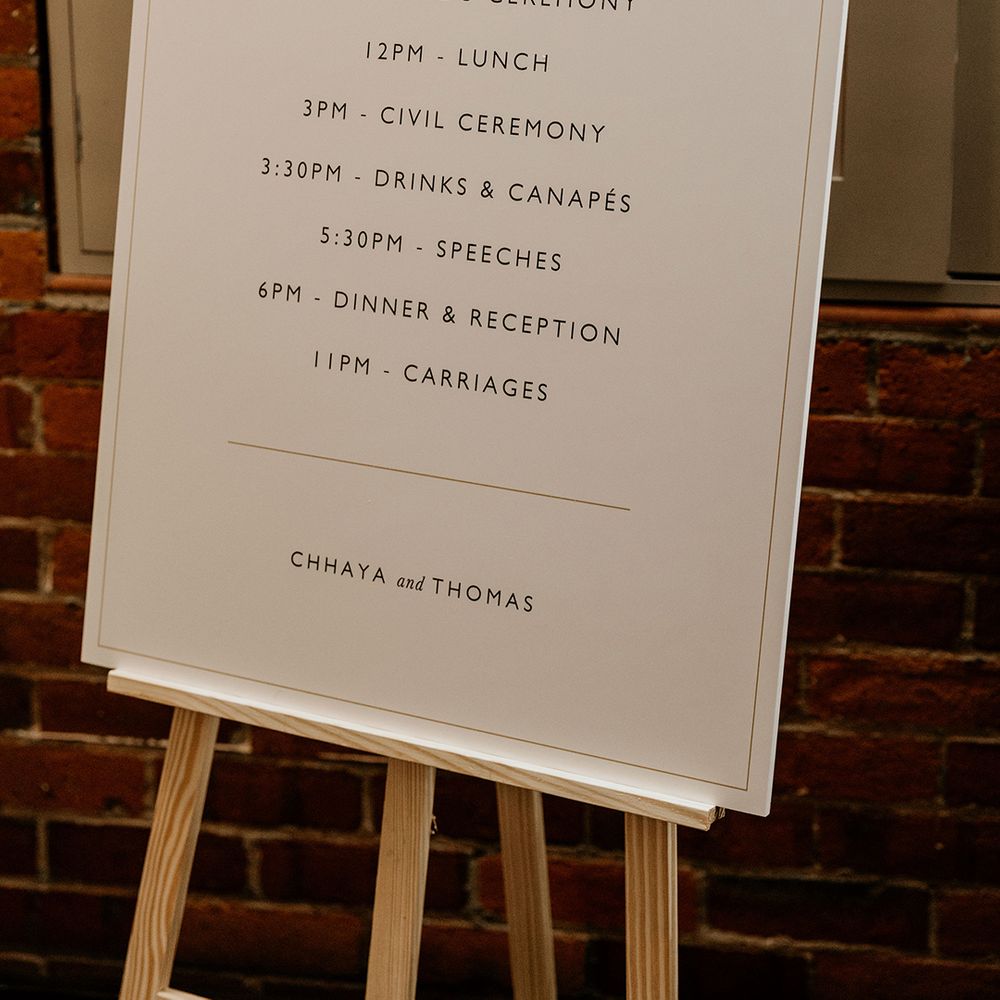 CEREMONY
12PM - LUNCH
3PM - CIVIL CEREMONY
3:30PM - DRINKS & CANAPÉS
5:30PM - SPEECHES
6PM - DINNER & RECEPTION
11PM - CARRIAGES
CHHAYA and THOMAS